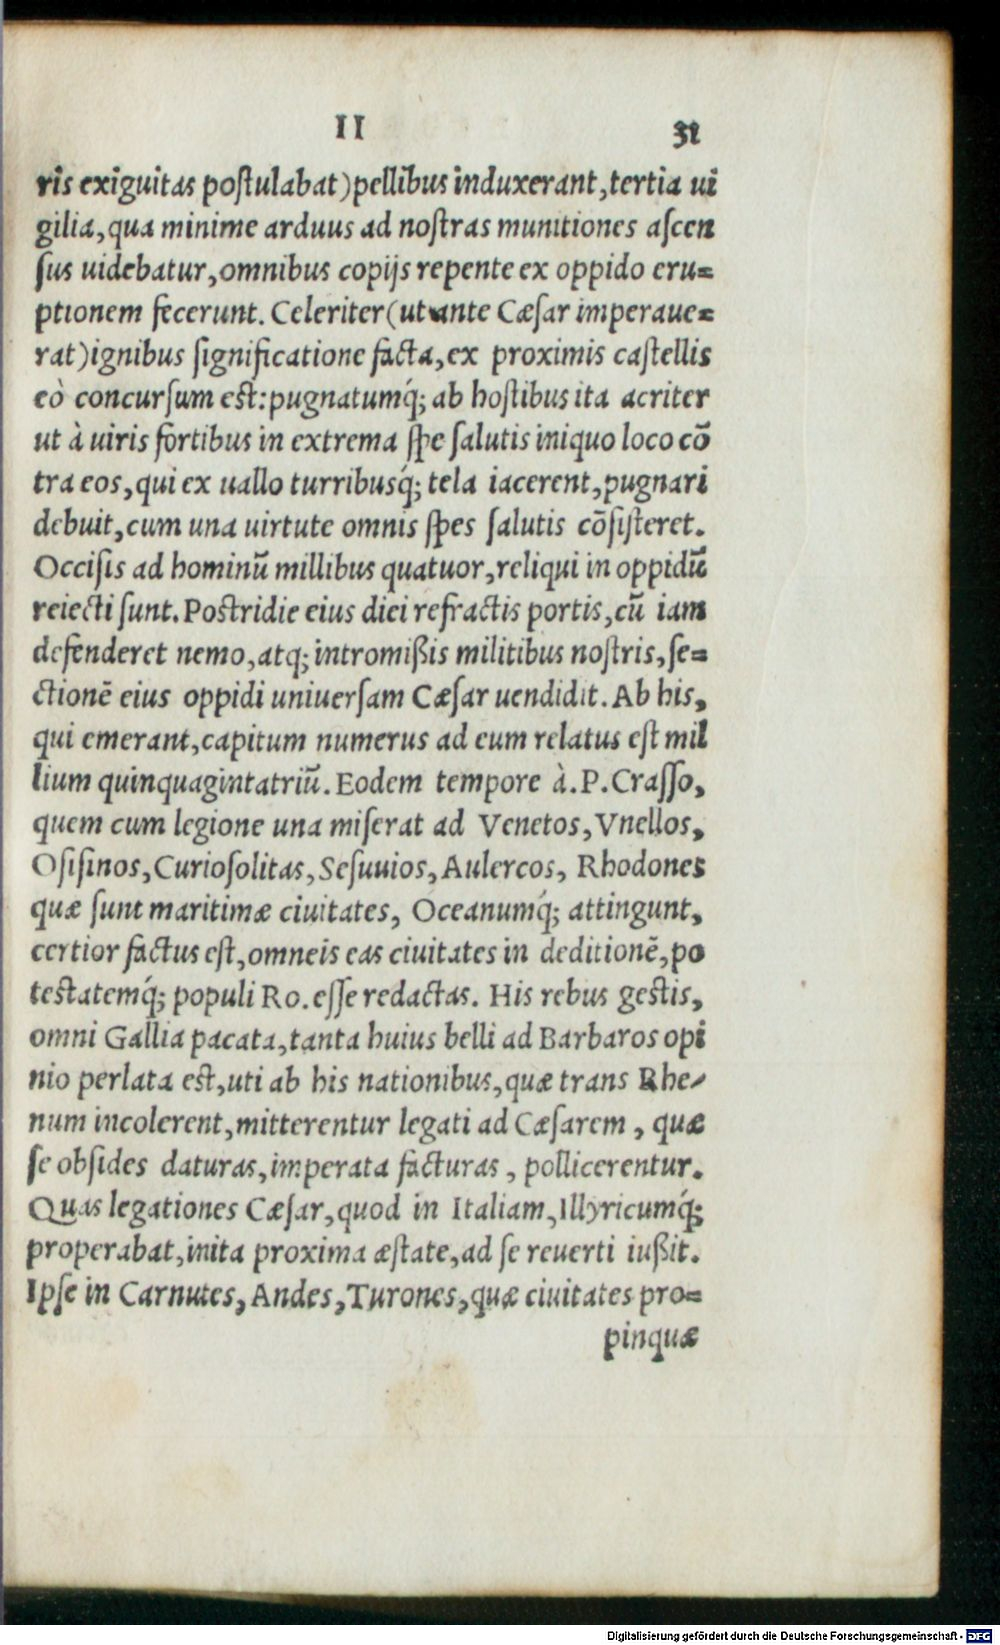 II 31
ris exiguitas poſtulabat)pellibus induxerant,tertia ui
gilia,qua minime arduus ad noſtras munitiones aſcen
ſus uidebatur,omnibus copijs repente ex oppido eru=
ptionem fecerunt. Celeriter(ut ante Cæſar imperaue=
rat)ignibus ſignificatione facta,ex proximis caſtellis
eò concurſum est:pugnatumq́; ab hoſtibus ita acriter
ut à uiris fortibus in extrema ſpe ſalutis iniquo loco cõ
tra eos,qui ex uallo turribusq́; tela iacerent,pugnari
debuit,cum una uirtute omnis ſpes ſalutis cõſiſteret.
Occiſis ad hominũ millibus quatuor,reliqui in oppidũ
reiecti ſunt.Postridie eius diei refractis portis,cũ iam
defenderet nemo,atq; intromißis militibus noſtris,ſe=
ctionẽ eius oppidi uniuerſam Cæſar uendidit. Ab his,
qui emerant,capitum numerus ad eum relatus eſt mil
lium quinquagintatriũ. Eodem tempore à.P.Craſſo,
quem cum legione una miſerat ad Venetos,Vnellos,
Oſiſinos,Curioſolitas,Seſuuios,Aulercos, Rhodones
quæ ſunt maritimæ ciuitates, Oceanumq́; attingunt,
certior factus eſt,omneis eas ciuitates in deditionẽ,po
testatemq́; populi Ro.eſſe redactas. His rebus gestis,
omni Gallia pacata,tanta huius belli ad Barbaros opi
nio perlata est,uti ab his nationibus,quæ trans Rhe-
num incolerent,mitterentur legati ad Cæſarem, quæ
ſe obſides daturas,imperata facturas, pollicerentur.
Quas legationes Cæſar,quod in Italiam,Illyricumq́;
properabat,inita proxima æſtate,ad ſe reuerti iußit.
Ipſe in Carnutes,Andes,Turones,quæ ciuitates pro=
pinquæ
Digitalisierung gefördert durch die Deutsche Forschungsgemeinschaft - DFG